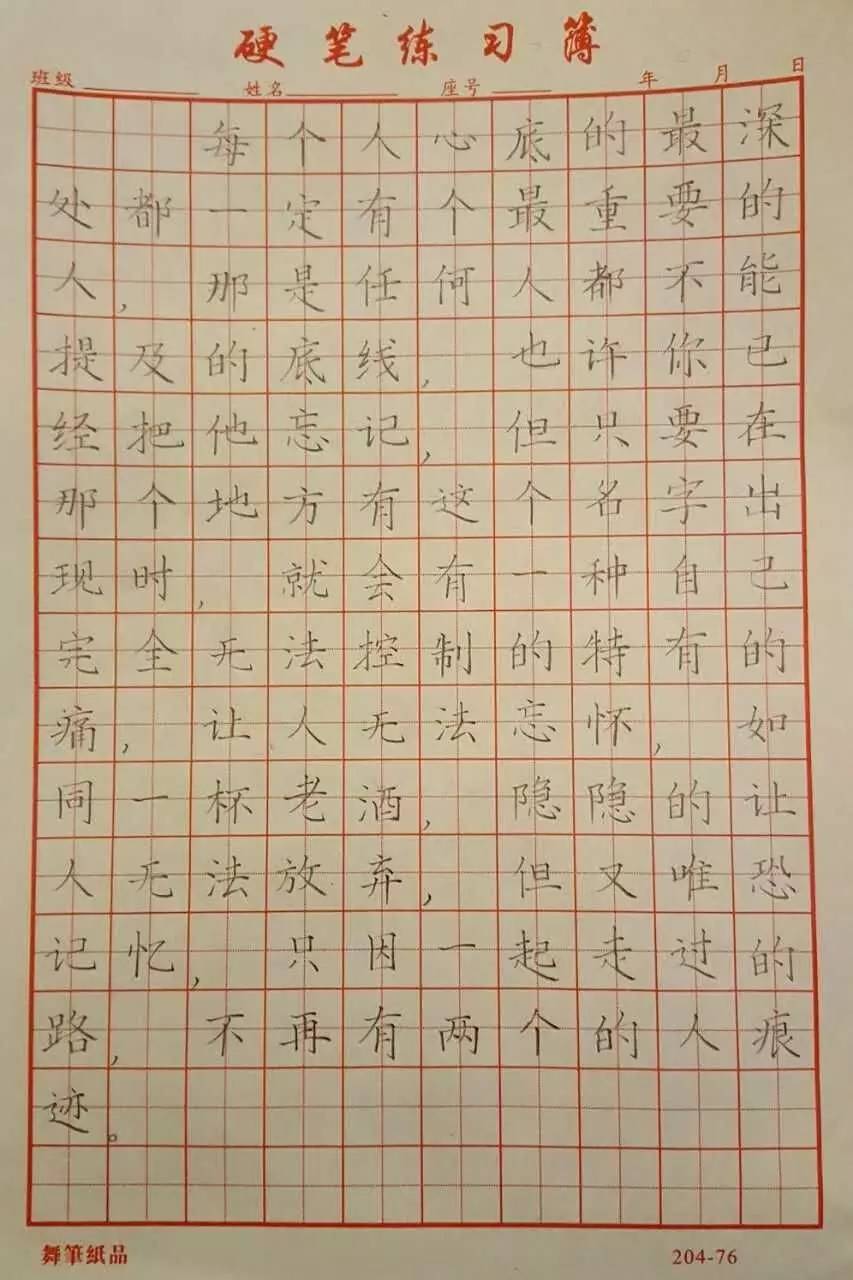 硬笔练习簿
班级 姓名 座号 年 月 日
每个人心底的最深
处都一定有个最重要的
人,那是任何人都不能
提及的底线,也许你已
经把他忘记,但只要在
那个地方有这个名字出
现时,就会有一种自己
完全无法控制的特有的
痛,让人无法忘怀,如
同一杯老酒,隐隐的让
人无法放弃,但又唯恐
记忆,只因一起走过的
路,不再有两个的人痕
迹。
舞筆紙品 204-76